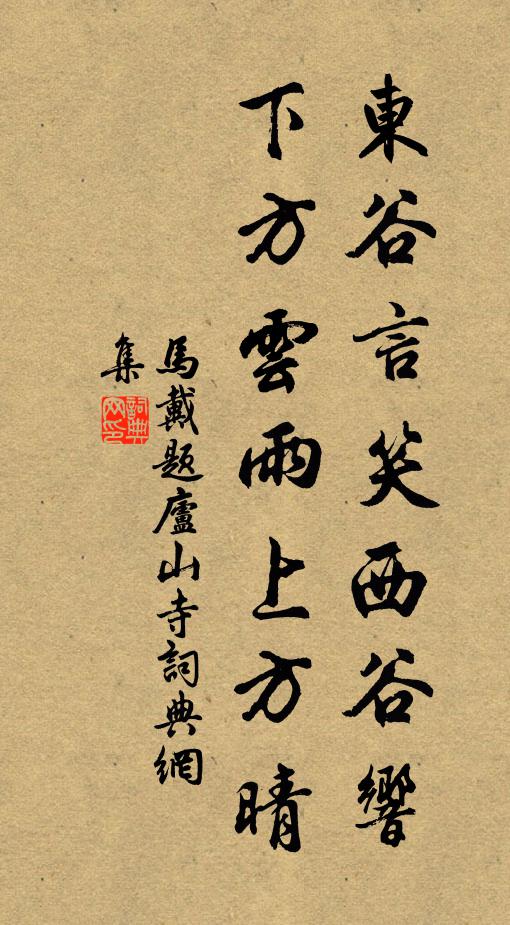 東谷言笑西谷響
下方雲雨上方晴
馬戴題廬山寺詞典網
集
詞典
网印